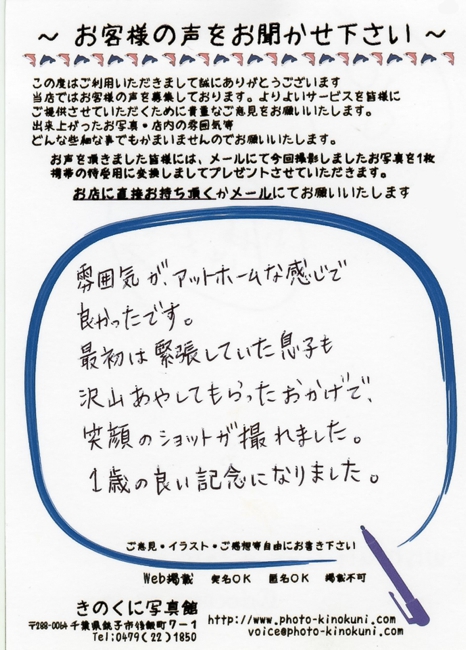 ～ お客様の声をお聞かせ下さい ～
この度はご利用いただきまして誠にありがとうございます
当店ではお客様の声を募集しております。よりよいサービスを皆様に
ご提供させていただくために貴重なご意見をお願いいたします。
出来上がったお写真・店内の雰囲気等
どんな些細な事でもかまいませんのでお願いいたします。
お声を頂きました皆様には、メールにて今回撮影しましたお写真を1枚
携帯の待受用に変換しましてプレゼントさせていただきます。
お店に直接お持ち頂くかメールにてお願いいたします
雰囲気が、アットホームな感じで
良かったです。
最初は緊張していた息子も
沢山あやしてもらったおかげで、
笑顔のショットが撮れました。
1歳の良い記念になりました。
ご意見・イラスト・ご感想等自由にお書き下さい
Web掲載 実名OK 匿名OK 掲載不可
きのくに写真館
〒288-0064 千葉県銚子市 町7-1
Tel:0479(22)1850
http://www.photo-kinokuni.com/
voice@photo-kinokuni.com